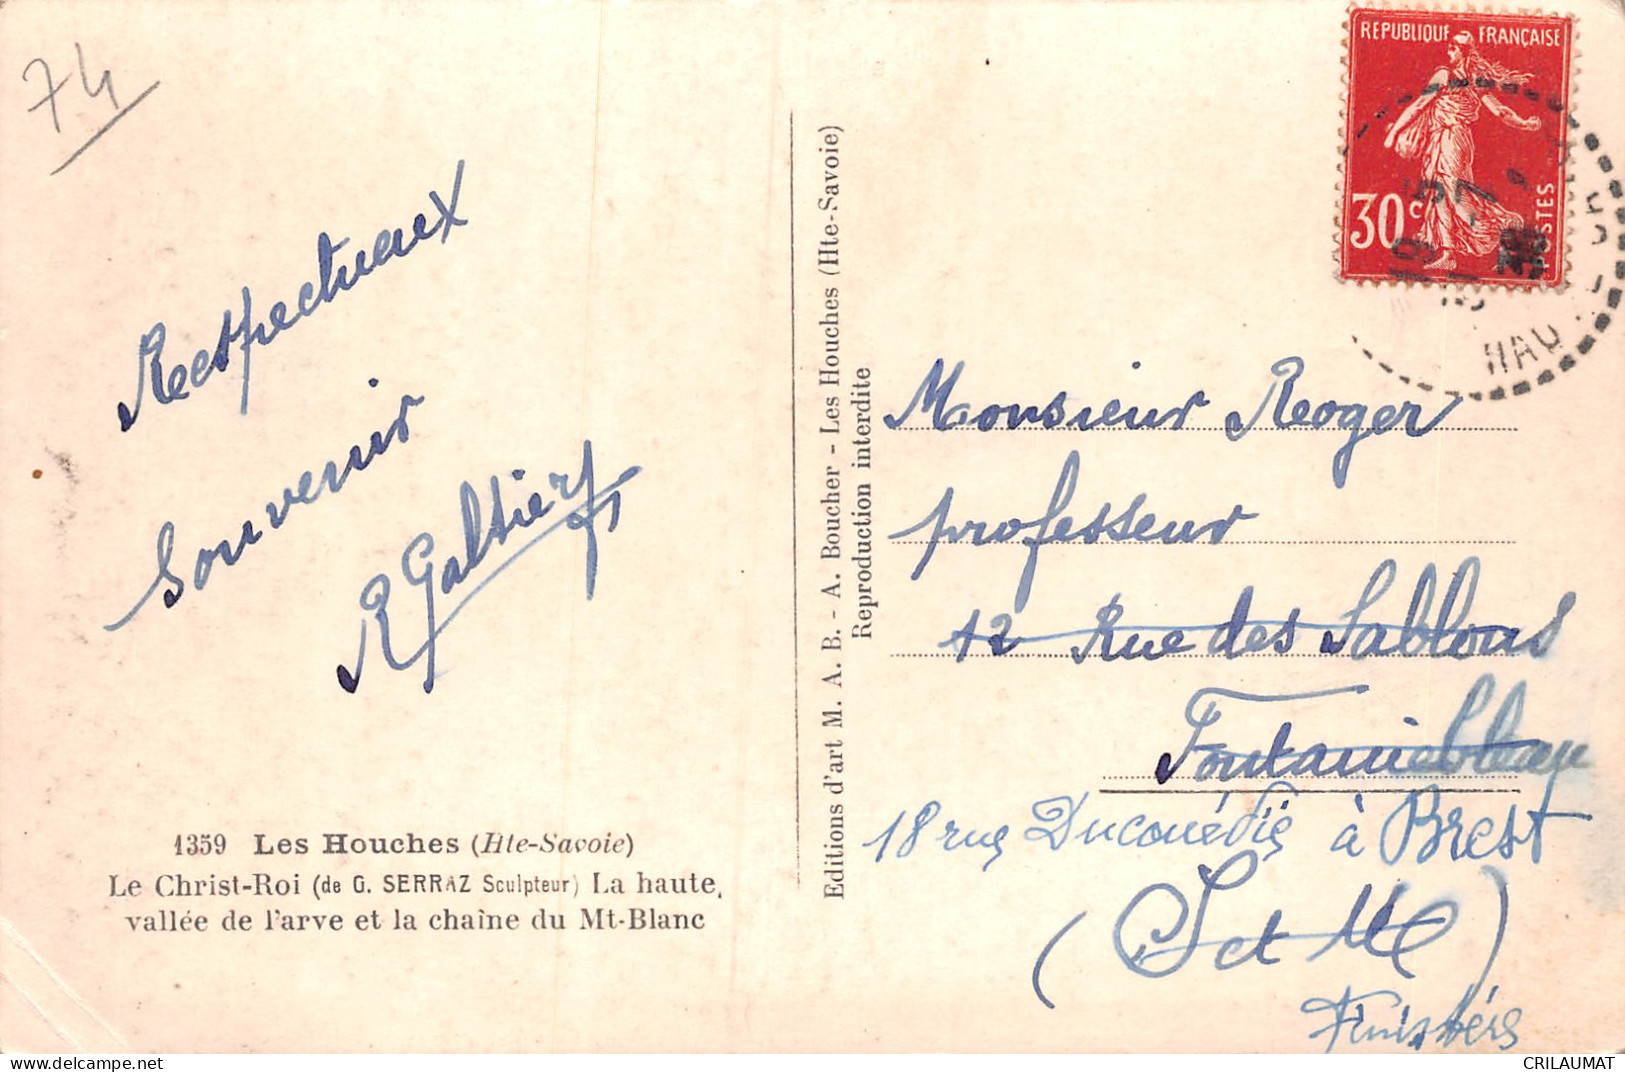 74
Respectueux
Souvenir
R Galtier
1359 Les Houches (Hte-Savoie)
Le Christ-Roi (de G. SERRAZ Sculpteur) La haute,
vallée de l'arve et la chaîne du Mt-Blanc
Editions d'art M. A. B. - A. Boucher - Les Houches (Hte-Savoie)
Reproduction interdite
REPUBLIQUE FRANÇAISE
30c
POSTES
19 5
31 -7
38
HAU
Monsieur Roger
professeur
12 Rue des Sablons
Fontainebleau
18 rue Ducouédic à Brest
(S et M)
Finistère
delcampe.net
CRILAUMAT